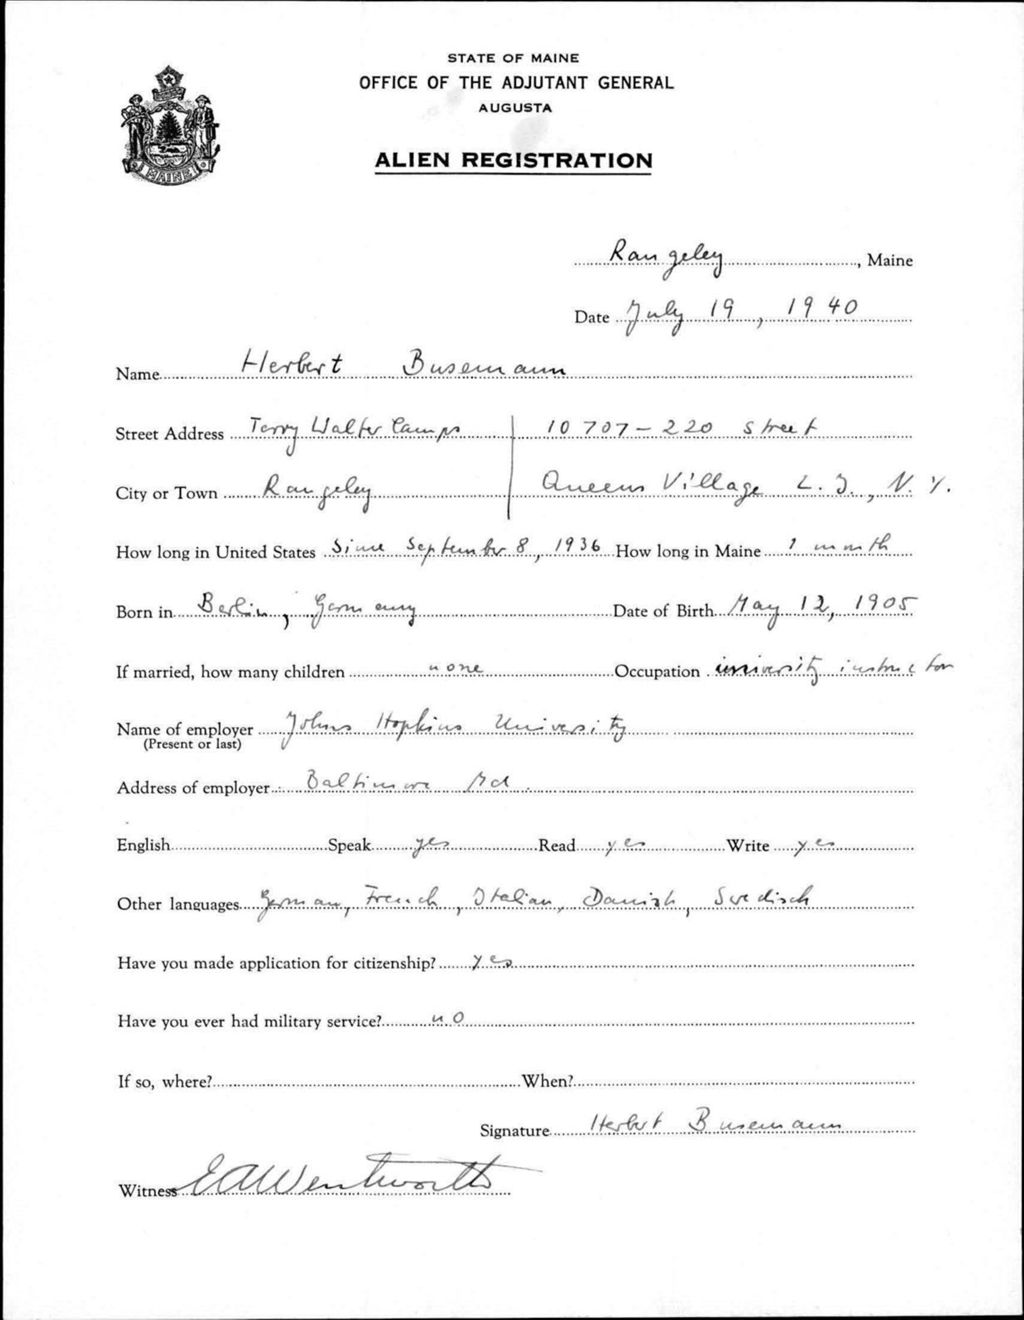 STATE OF MAINE
OFFICE OF THE ADJUTANT GENERAL
AUGUSTA
ALIEN REGISTRATION
MAINE
Rangeley, Maine
Date July 19, 1940
Name Herbert Busemann
Street Address Terry Walter Camps | 10707-220 street
City or Town Rangeley | Queens Village L.I., N.Y.
How long in United States Since September 8, 1936 How long in Maine 1 month
Born in Berlin, Germany Date of Birth May 12, 1905
If married, how many children none Occupation university instructor
Name of employer Johns Hopkins University
(Present or last)
Address of employer Baltimore Md.
English Speak yes Read yes Write yes
Other languages German, French, Italian, Danish, Swedisch
Have you made application for citizenship? yes
Have you ever had military service? no
If so, where? When?
Signature Herbert Busemann
Witness E A Wentworth